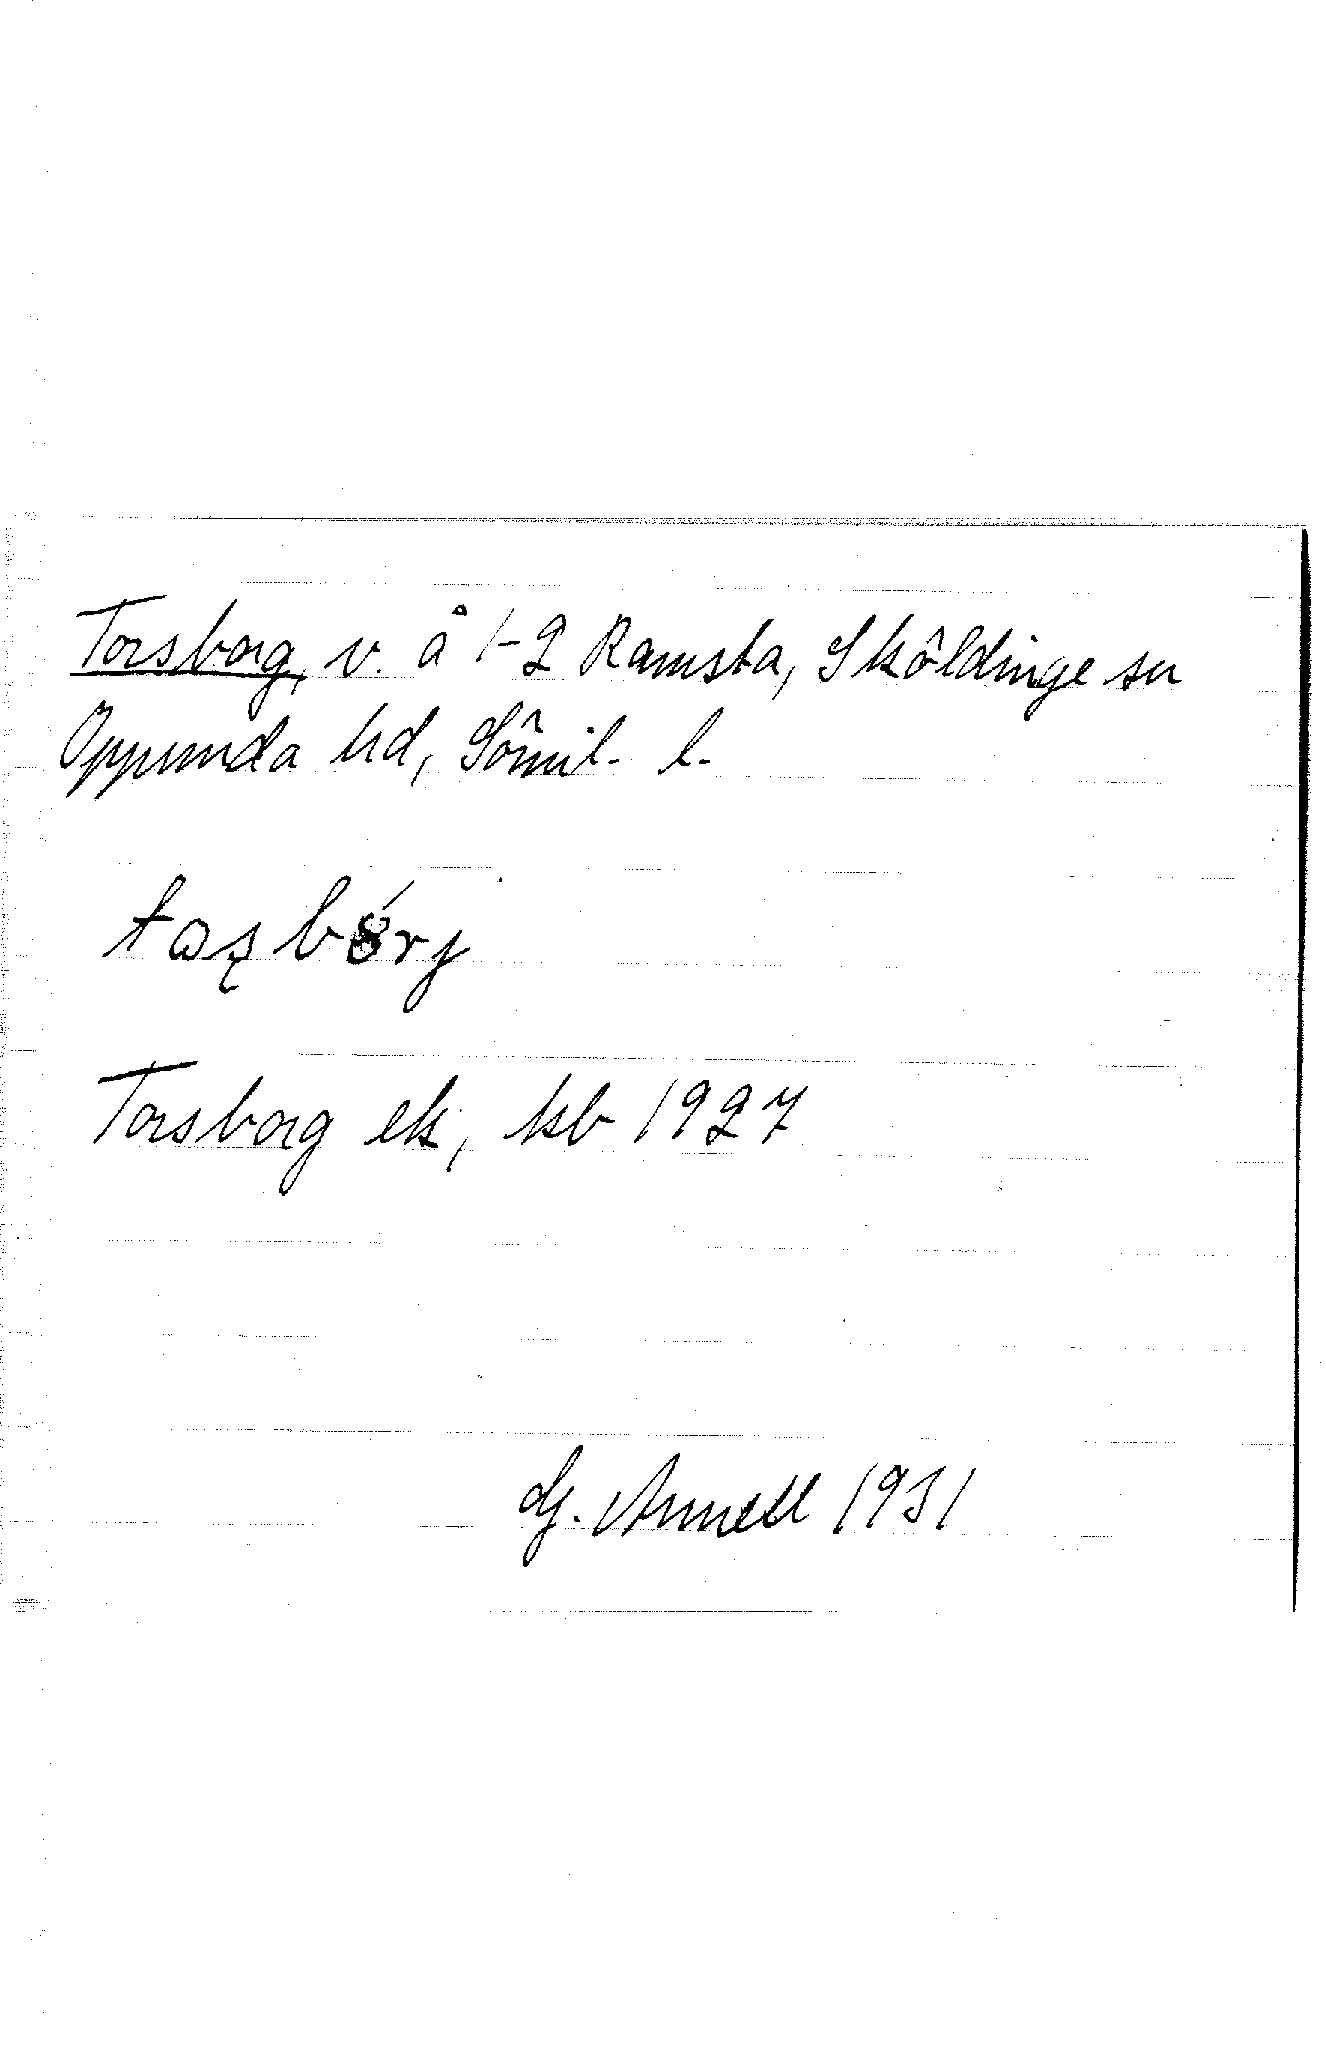 Torsborg, v. å 1-2 Ramsta, Sköldinge sn
Oppunda hd, Söml. l.
Torsborg ek, kb 1927
G. Annell 1931